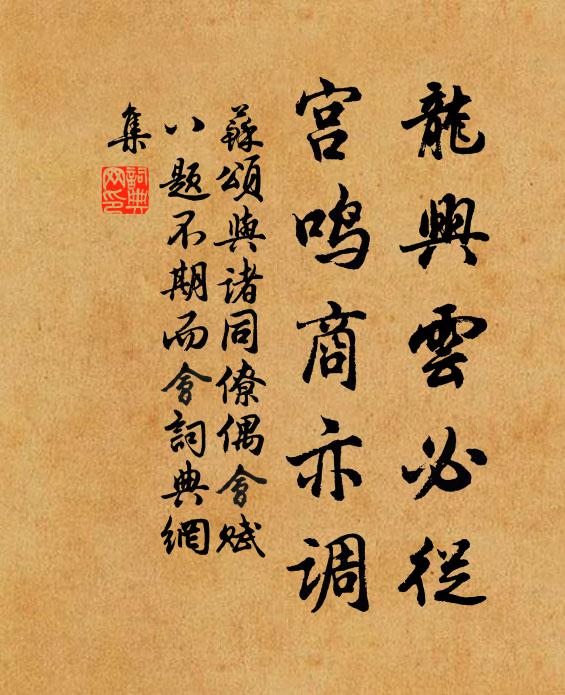 龍興雲必從
宮鳴商亦调
蘇頌與諸同僚偶會賦
八題不期而會詞典網
集
詞典
网印